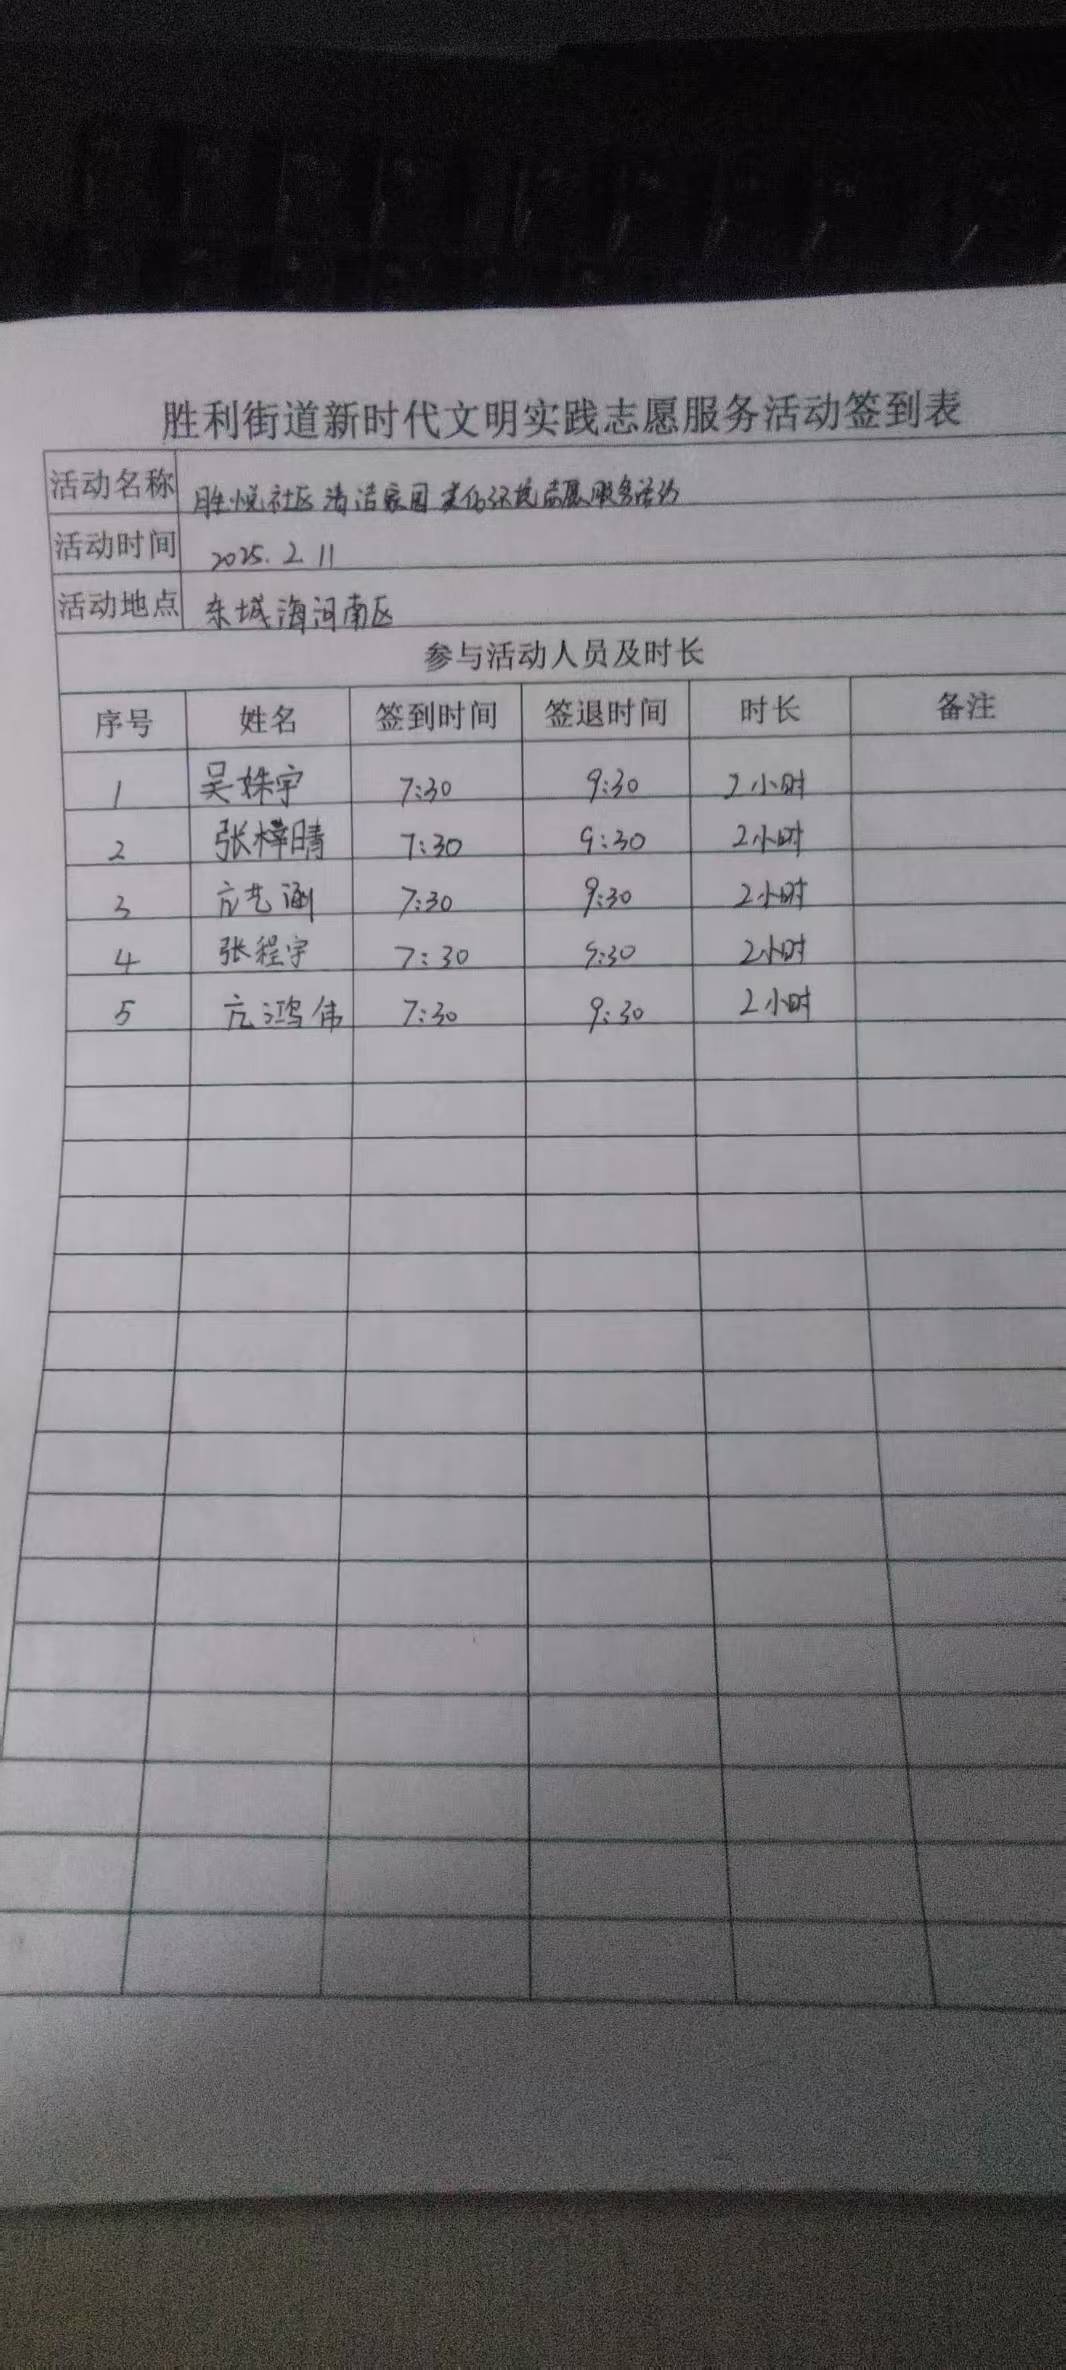 胜利街道新时代文明实践志愿服务活动签到表
活动名称 胜悦社区清洁家园美化环境志愿服务活动
活动时间 2025.2.11
活动地点 东城海河南区
参与活动人员及时长
序号 姓名 签到时间 签退时间 时长 备注
1 吴姝宇 7:30 9:30 2小时
2 张梓晴 7:30 9:30 2小时
3 亢艺涵 7:30 9:30 2小时
4 张程宇 7:30 9:30 2小时
5 亢鸿伟 7:30 9:30 2小时